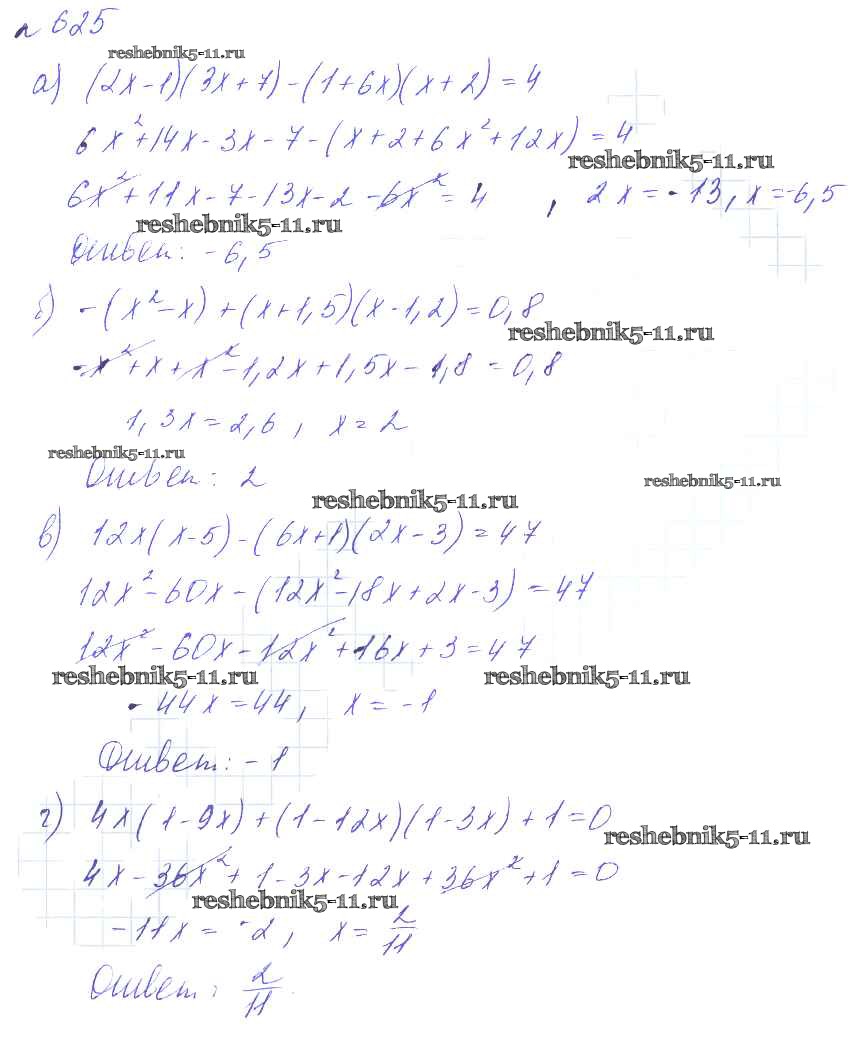 № 625
reshebnik5-11.ru
а) (2x-1)(3x+7)-(1+6x)(x+2)=4
6x²+14x-3x-7-(x+2+6x²+12x)=4
reshebnik5-11.ru
6x²+11x-7-13x-2-6x²=4, 2x=-13, x=-6,5
reshebnik5-11.ru
Ответ: -6,5
б) -(x²-x)+(x+1,5)(x-1,2)=0,8
reshebnik5-11.ru
-x²+x+x²-1,2x+1,5x-1,8=0,8
1,3x=2,6, x=2
reshebnik5-11.ru
Ответ: 2
reshebnik5-11.ru
reshebnik5-11.ru
в) 12x(x-5)-(6x+1)(2x-3)=47
12x²-60x-(12x²-18x+2x-3)=47
12x²-60x-12x²+16x+3=47
reshebnik5-11.ru reshebnik5-11.ru
-44x=44, x=-1
Ответ: -1
г) 4x(1-9x)+(1-12x)(1-3x)+1=0
reshebnik5-11.ru
4x-36x²+1-3x-12x+36x²+1=0
reshebnik5-11.ru
-11x=-2, x=2/11
Ответ: 2/11.